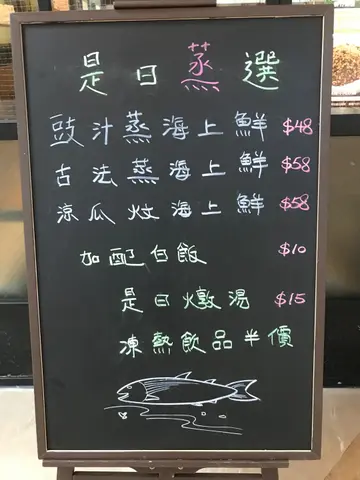 是日蒸選
豉汁蒸海上鮮 $48
古法蒸海上鮮 $58
涼瓜炆海上鮮 $58
加配白飯 $10
是日燉湯 $15
凍熱飲品半價